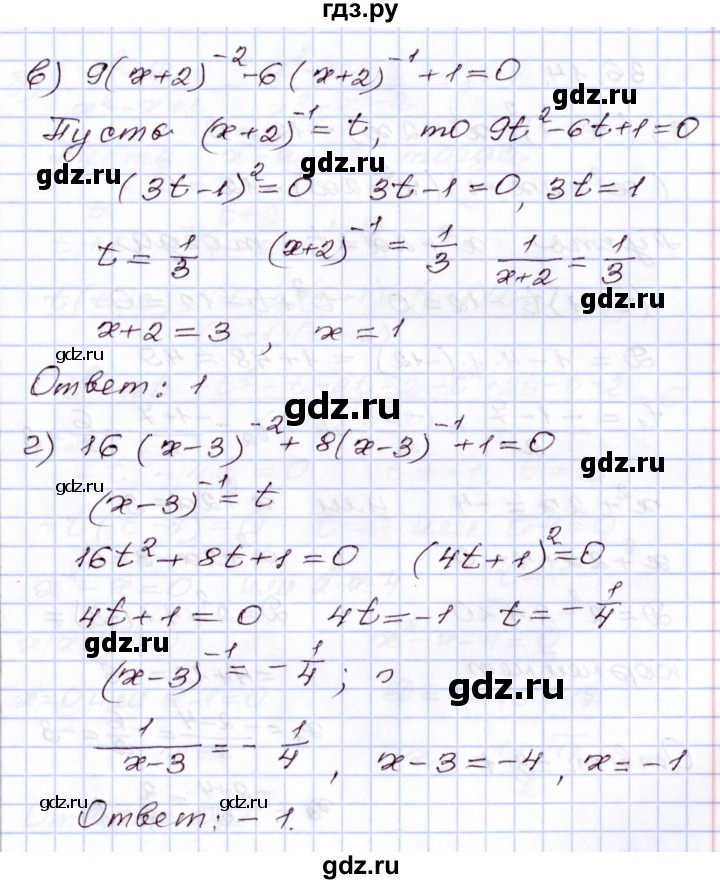 гдз.ру
в) 9(x+2)⁻² - 6(x+2)⁻¹ + 1 = 0
gdz.ru
Пусть (x+2)⁻¹ = t, то 9t² - 6t + 1 = 0
gdz.ru gdz.ru
(3t-1)² = 0 3t-1 = 0, 3t = 1
t = 1/3 (x+2)⁻¹ = 1/3 1/(x+2) = 1/3
gdz.ru
x+2 = 3, x = 1
gdz.ru
Ответ: 1
gdz.ru
г) 16(x-3)⁻² + 8(x-3)⁻¹ + 1 = 0
gdz.ru
gdz.ru
(x-3)⁻¹ = t
16t² + 8t + 1 = 0 (4t+1)² = 0
4t+1 = 0 4t = -1 t = -1/4
gdz.ru
(x-3)⁻¹ = -1/4;
gdz.ru
1/(x-3) = -1/4, x-3 = -4, x = -1
gdz.ru
Ответ: -1.
gdz.ru
gdz.ru